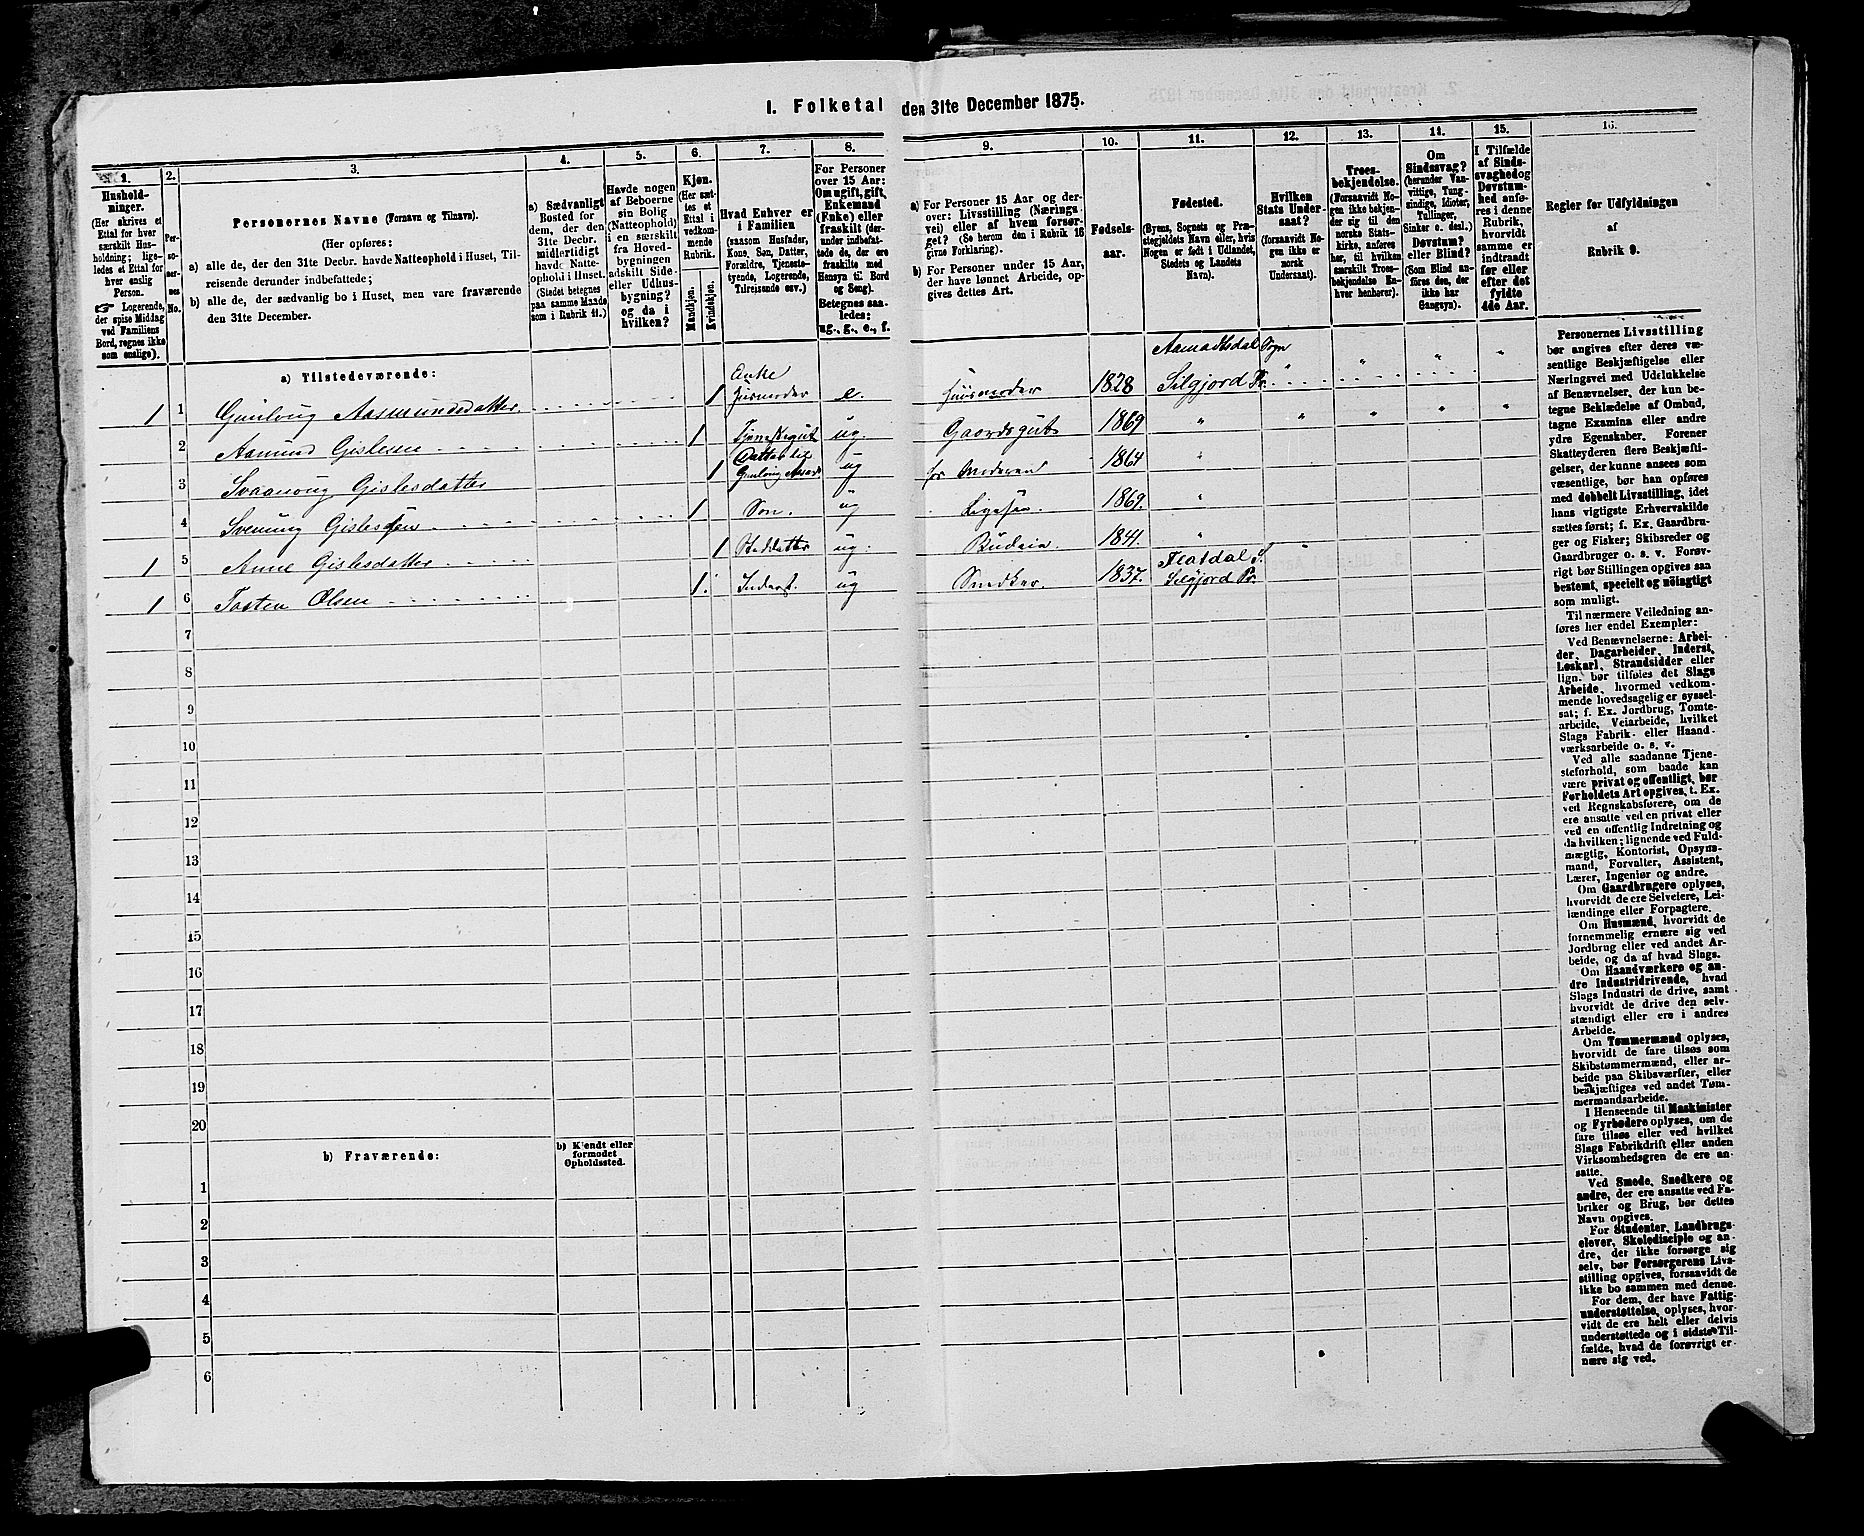 I. Folketal den 31te December 1875.
1.
Hushold-
ninger.
(Her skrives et
Ettal for hver
særskilt Hus-
holdning; lige-
ledes et Ettal for
hver enslig
Person.
Logerende,
der spise Middag
ved Familiens
Bord, regnes ikke
som enslige).
2.
Per-
so-
ner-
nes
No.
3.
Personernes Navne (Fornavn og Tilnavn).
(Her opføres:
a) alle de, der den 31te Decbr. havde Natteophold i Huset, Til-
reisende derunder indbefattede;
b) alle de, der sædvanlig bo i Huset, men vare fraværende
den 31te December.
4.
a) Sædvanligt
Bosted for
dem, der den
31te Decbr.
midlertidigt
havde Natte-
ophold i Huset.
(Stedet betegnes
paa samme Maade
som i Rubrik 11.)
5.
Havde nogen
af Beboerne
sin Bolig
(Natteophold)
i en særskilt
fra Hoved-
bygningen
adskilt Side-
eller Udhus-
bygning?
og da i
hvilken?
6.
Kjøn.
(Her sæt-
tes et
Ettal i
vedkom-
mende
Rubrik.
Mandkjøn.
Kvindekjøn.
7.
Hvad Enhver er
i Familien
(saasom Husfader,
Kone, Søn, Datter,
Forældre, Tjeneste-
tyende, Logerende,
Tilreisende osv.)
8.
For Personer
over 15 Aar:
Om ugift, gift,
Enkemand
(Enke) eller
fraskilt (der-
under indbefat-
tede de, der ere
fraskilte med
Hensyn til Bord
og Seng).
Betegnes saa-
ledes:
ug., g., e., f.
9.
a) For Personer 15 Aar og der-
over: Livsstilling (Nærings-
vei) eller af hvem forsør-
get? (Se herom den i Rubrik 16
givne Forklaring).
b) For Personer under 15 Aar,
der have lønnet Arbeide, op-
gives dettes Art.
10.
Fødsels-
aar.
11.
Fødested.
(Byens, Sognets og Præ-
stegjeldets Navn eller, hvis
Nogen er født i Udlandet,
Stedets og Landets
Navn).
12.
Hvilken
Stats Under-
saat?
(forsaavidt No-
gen ikke er
norsk
Undersaat).
13.
Troes-
bekjendelse.
(Forsaavidt No-
gen ikke bekjen-
der sig til den
norske Stats-
kirke, anføres
her, til hvilken
særskilt Troes-
bekjendelse En-
hver henhører).
14.
Om
Sindssvag?
(herunder Van-
vittige, Tung-
sindige, Idioter,
Tullinger,
Sinker o. desl.)
Døvstum?
eller Blind?
(Som Blind an-
føres den, der
ikke har
Gangsyn).
15.
I Tilfælde
af Sinds-
svaghed og
Døvstum-
hed anfø-
res i denne
Rubrik,
hvorvidt
samme er
indtraadt
før eller
efter det
fyldte
4de Aar.
16.
Regler for Udfyldningen
af
Rubrik 9.
a) Tilstedeværende:
1 1 Gunloug Aasmundsdatter 1 Enke Husmoder e. Huusmoder 1828 Aamodtsdal Sogn Silgjord Pr. " " "
2 Aamund Gislesen 1 Tjenestegut ug. Gaardsgut 1869 " " " " "
3 Svanaug Gislesdatter 1 Datter til Gunloug Aasmds ug for Moderen 1864 "
4 Svenung Gislesøn 1 Søn. ug Ligesaa. 1869. "
1 5 Anne Gislesdatter 1 Steddatter ug. Budeie. 1841. "
1 6 Tosten Olsen 1 Inderst. ug Snedker 1837. Flatdal S. Silgjord Pr. "
7
8
9
10
11
12
13
14
15
16
17
18
19
20
b) Fraværende:
b) Kjendt eller
formodet
Opholdssted.
1
2
3
4
5
6
Personernes Livsstilling
bør angives efter deres væ-
sentlige Beskjæftigelse eller
Næringsvei med Udelukkelse
af Benævnelser, der kun be-
tegne Beklædelse af Ombud,
tagne Examina eller andre
ydre Egenskaber. Forener
Skatteyderen flere Beskjæfti-
gelser, der kunne ansees som
væsentlige, bør han opføres
med dobbelt Livsstilling, idet
hans vigtigste Erhvervskilde
sættes først; f. Ex. Gaardbru-
ger og Fisker; Skibsreder og
Gaardbruger o. s. v. Forøv-
rigt bør Stillingen opgives saa
bestemt, specielt og nøiagtigt
som muligt.
Til nærmere Veiledning an-
føres her endel Exempler:
Ved Benævnelserne: Arbei-
der, Dagarbeider, Inderst,
Løskarl, Strandsidder eller
lign. bør tilføies det Slags
Arbeide, hvormed vedkom-
mende hovedsagelig er syssel-
sat; f. Ex. Jordbrug, Tomte-
arbeide, Veiarbeide, hvilket
Slags Fabrik- eller Haand-
værksarbeide o. s. v.
Ved alle saadanne Tjene-
steforhold, som baade kan
være privat og offentligt, bør
Forholdets Art opgives, t. Ex.
ved Regnskabsførere, om de
ere ansatte ved en privat eller
ved en offentlig Indretning og
da hvilken; lignende ved Fuld-
mægtig, Kontorist, Opsyns-
mand, Forvalter, Assistent,
Lærer, Ingeniør og andre.
Om Gaardbrugere oplyses,
hvorvidt de ere Selveiere, Lei-
lændinge eller Forpagtere.
Om Husmænd, hvorvidt de
fornemmelig ernære sig ved
Jordbrug eller ved andet Ar-
beide, og da af hvad Slags.
Om Haandværkere og an-
dre Industridrivende, hvad
Slags Industri de drive, samt
hvorvidt de drive den selv-
stændigt eller ere i andres
Arbeide.
Om Tømmermænd oplyses,
hvorvidt de fare tilsøs som
Skibstømmermænd, eller ar-
beide paa Skibsværfter, eller
beskjæftiges ved andet Tøm-
mermandsarbeide.
I Henseende til Maskinister
og Fyrbødere oplyses, om de
fare tilsøs eller ved hvilket
Slags Fabrikdrift eller anden
Virksomhedsgren de ere an-
satte.
Ved Smede, Snedkere og
andre, der ere ansatte ved Fa-
briker og Brug, bør dettes
Navn opgives.
For Studenter, Landbrugs-
elever, Skoledisciple og an-
dre, der ikke forsørge sig
selv, bør Forsørgerens Livs-
stilling opgives, forsaavidt de
ikke bo sammen med denne.
For dem, der have Fattig-
understøttelse, oplyses, hvor-
vidt de ere helt eller delvis
understøttede og i sidste Til-
fælde, hvad de forøvrigt er-
nære sig ved.